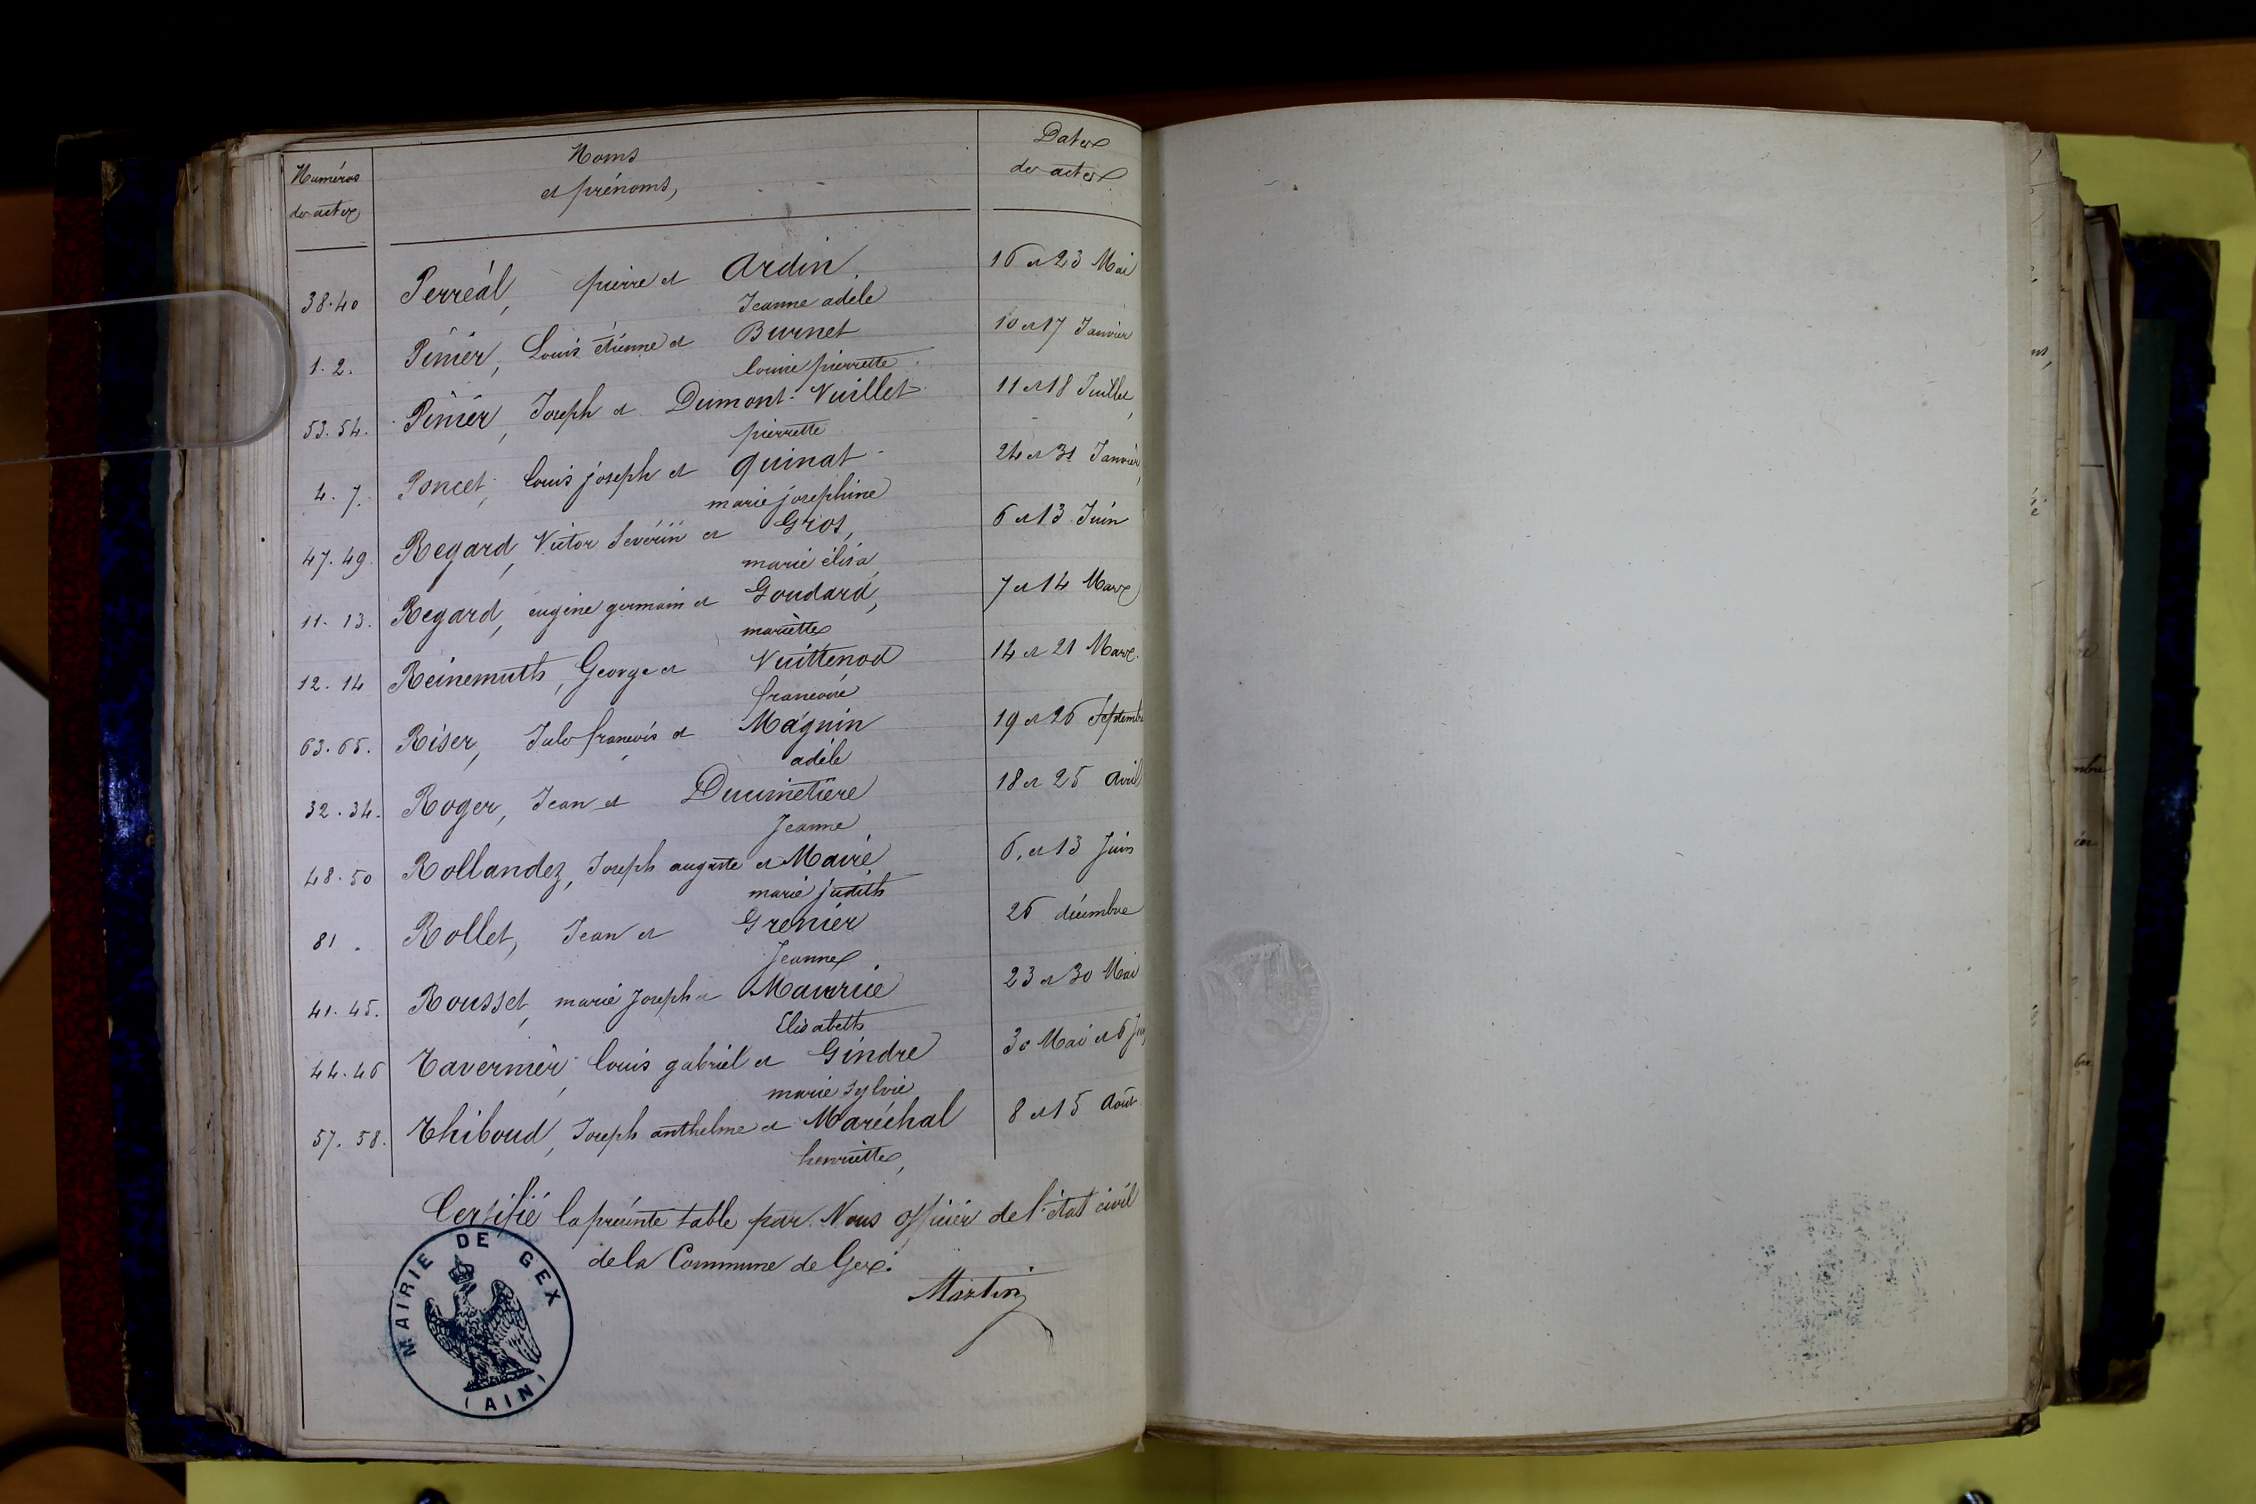 Numéros
des actes
Noms
et prénoms,
Dates
des actes
38.40 Perréal, pierre et Ardin. 16 et 23 Mai
Jeanne adele
1. 2. Pinier, Louis étienne et Burnet 10 et 17 Janvier
louise pierrette
53. 54. Pinier, Joseph et Dumont-Vuillet 11 et 18 Juillet,
pierrette
4. 7. Poncet, louis joseph et quinat 24 et 31 Janvier,
marie josephine
47. 49. Regard, Victor Séverin et Gros, 6 et 13 Juin
marie élisa,
11. 13. Regard, eugène germain et Goudard, 7 et 14 Mars
mariette
12. 14 Reinemuth, George et Vuittenod 14 et 21 Mars.
francoise
63. 65. Riser, Jules françois et Magnin 19 et 26 Septembre
adèle
32. 34. Roger, Jean et Ducimetière 18 et 25 Avril
Jeanne
48. 50 Rollandez, Joseph auguste et Maire 6, et 13 Juin
marie judith
81. Rollet, Jean et Grenier 26 décembre
Jeanne
41. 45. Rousset, marie Joseph et Maurice 23 et 30 Mai
Elisabeth
44. 46 Tavernier, louis gabriel et Gindre 30 Mai et 6 Juin
marie sylvie
57. 58. Thiboud, Joseph anthelme et Maréchal 8 et 15 Août
henriette,
Certifié la présente table par Nous officier de l'état civil
de la Commune de Gex.
Martin
MAIRIE DE GEX
(AIN)